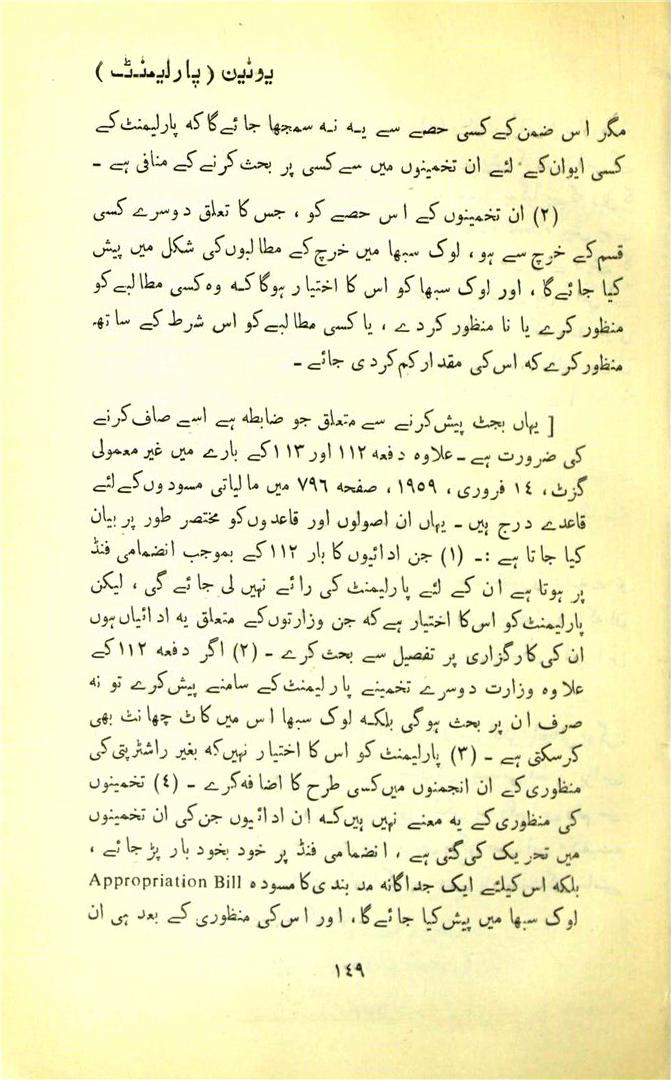 یونین (پارلیمنٹ)
مگر اس ضمن کے کسی حصے سے یہ نہ سمجھا جائے گا کہ پارلیمنٹ کے
کسی ایوان کے لئے ان تخمینوں میں سے کسی پر بحث کرنے کے منافی ہے ۔
(۲) ان تخمینوں کے اس حصے کو ، جس کا تعلق دوسرے کسی
قسم کے خرچ سے ہو ، لوک سبھا میں خرچ کے مطالبوں کی شکل میں پیش
کیا جائے گا ، اور لوک سبھا کو اس کا اختیار ہوگا کہ وہ کسی مطالبے کو
منظور کرے یا نا منظور کردے ، یا کسی مطالبے کو اس شرط کے ساتھ
منظور کرے کہ اس کی مقدار کم کردی جائے ۔
[ یہاں بجٹ پیش کرنے سے متعلق جو ضابطہ ہے اسے صاف کرنے
کی ضرورت ہے ۔ علاوہ دفعہ ۱۱۲ اور ۱۱۳ کے بارے میں غیر معمولی
گزٹ ، ۱٤ فروری ، ۱۹۵۹ ، صفحہ ۷۹٦ میں مالیاتی مسودوں کے لئے
قاعدے درج ہیں ۔ یہاں ان اصولوں اور قاعدوں کو مختصر طور پر بیان
کیا جاتا ہے :۔ (۱) جن ادائیوں کا بار ۱۱۲ کے بموجب انضمامی فنڈ
پر ہوتا ہے ان کے لئے پارلیمنٹ کی رائے نہیں لی جائے گی ، لیکن
پارلیمنٹ کو اس کا اختیار ہے کہ جن وزارتوں کے متعلق یہ ادائیاں ہوں
ان کی کارگزاری پر تفصیل سے بحث کرے ۔ (۲) اگر دفعہ ۱۱۲ کے
علاوہ وزارت دوسرے تخمینے پارلیمنٹ کے سامنے پیش کرے تو نہ
صرف ان پر بحث ہوگی بلکہ لوک سبھا اس میں کاٹ چھانٹ بھی
کرسکتی ہے ۔ (۳) پارلیمنٹ کو اس کا اختیار نہیں کہ بغیر راشٹرپتی کی
منظوری کے ان انجمنوں میں کسی طرح کا اضافہ کرے ۔ (٤) تخمینوں
کی منظوری کے یہ معنے نہیں ہیں کہ ان ادائیوں جن کی ان تخمینوں
میں تحریک کی گئی ہے ، انضمامی فنڈ پر خود بخود بار پڑ جائے ،
بلکہ اس کیلئے ایک جداگانہ مد بندی کا مسودہ Appropriation Bill
لوک سبھا میں پیش کیا جائے گا ، اور اس کی منظوری کے بعد ہی ان
۱٤۹